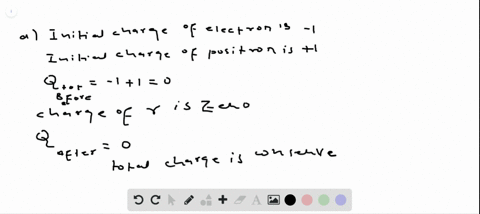 a) Initial charge of electron is -1
Initial charge of positron is +1
Q tot = -1 + 1 = 0
Before
charge of r is Zero
Q after = 0
total charge is conserve